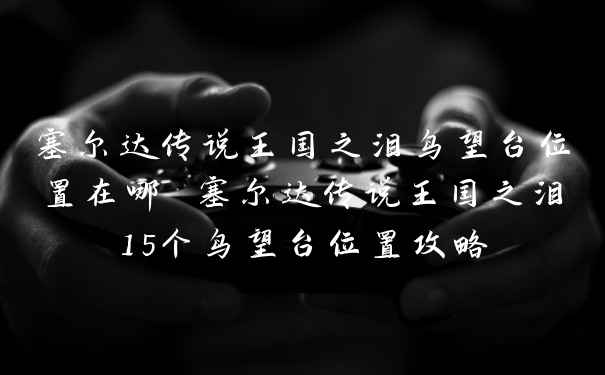 塞尔达传说王国之泪鸟望台位
置在哪 塞尔达传说王国之泪
15个鸟望台位置攻略